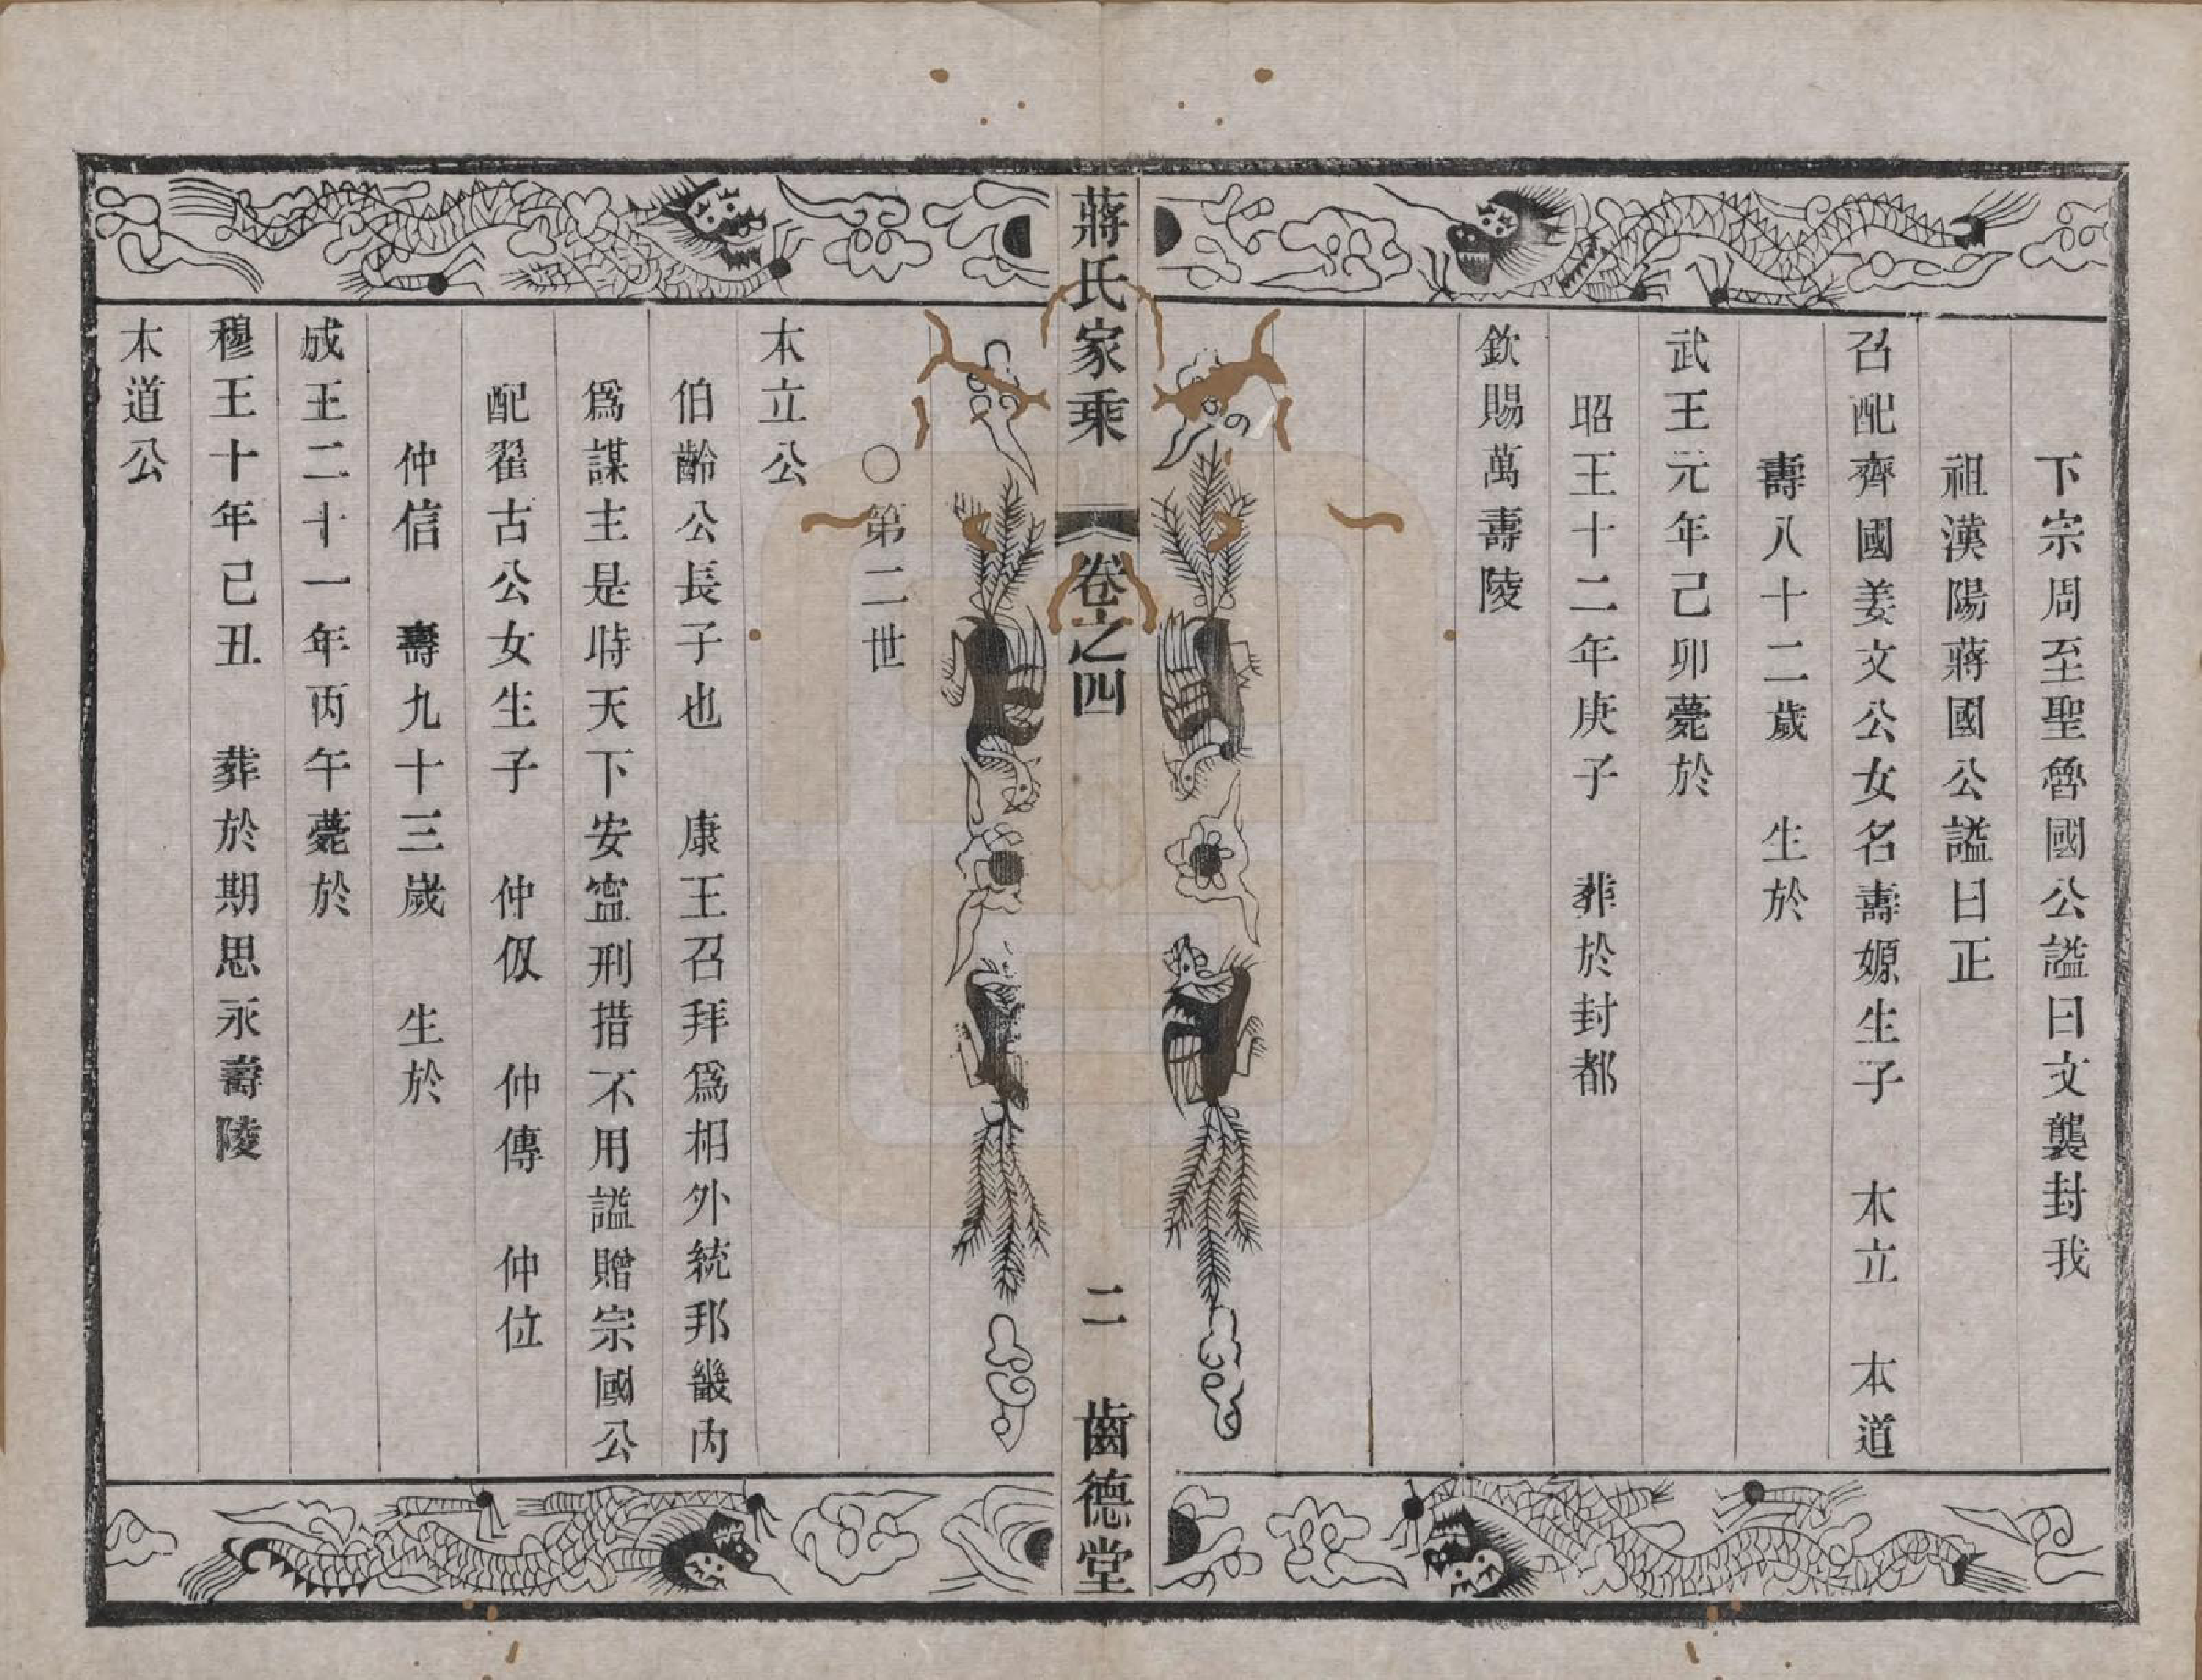 下宗周至聖魯國公謚曰文襲封我
祖漢陽蔣國公謚曰正
召配齊國姜文公女名壽嫄生子　木立　本道
壽八十二歲　生於
武王元年己卯薨於
昭王十二年庚子　葬於封都
欽賜萬壽陵
蔣氏家乘　卷之四　二　齒德堂
〇第二世
本立公
伯齡公長子也　康王召拜爲相外統邦畿內
爲謀主是時天下安寍刑措不用謚贈宗國公
配翟古公女生子　仲伋　仲傳　仲位
仲信　壽九十三歲　生於
成王二十一年丙午薨於
穆王十年己丑　葬於期思永壽陵
本道公